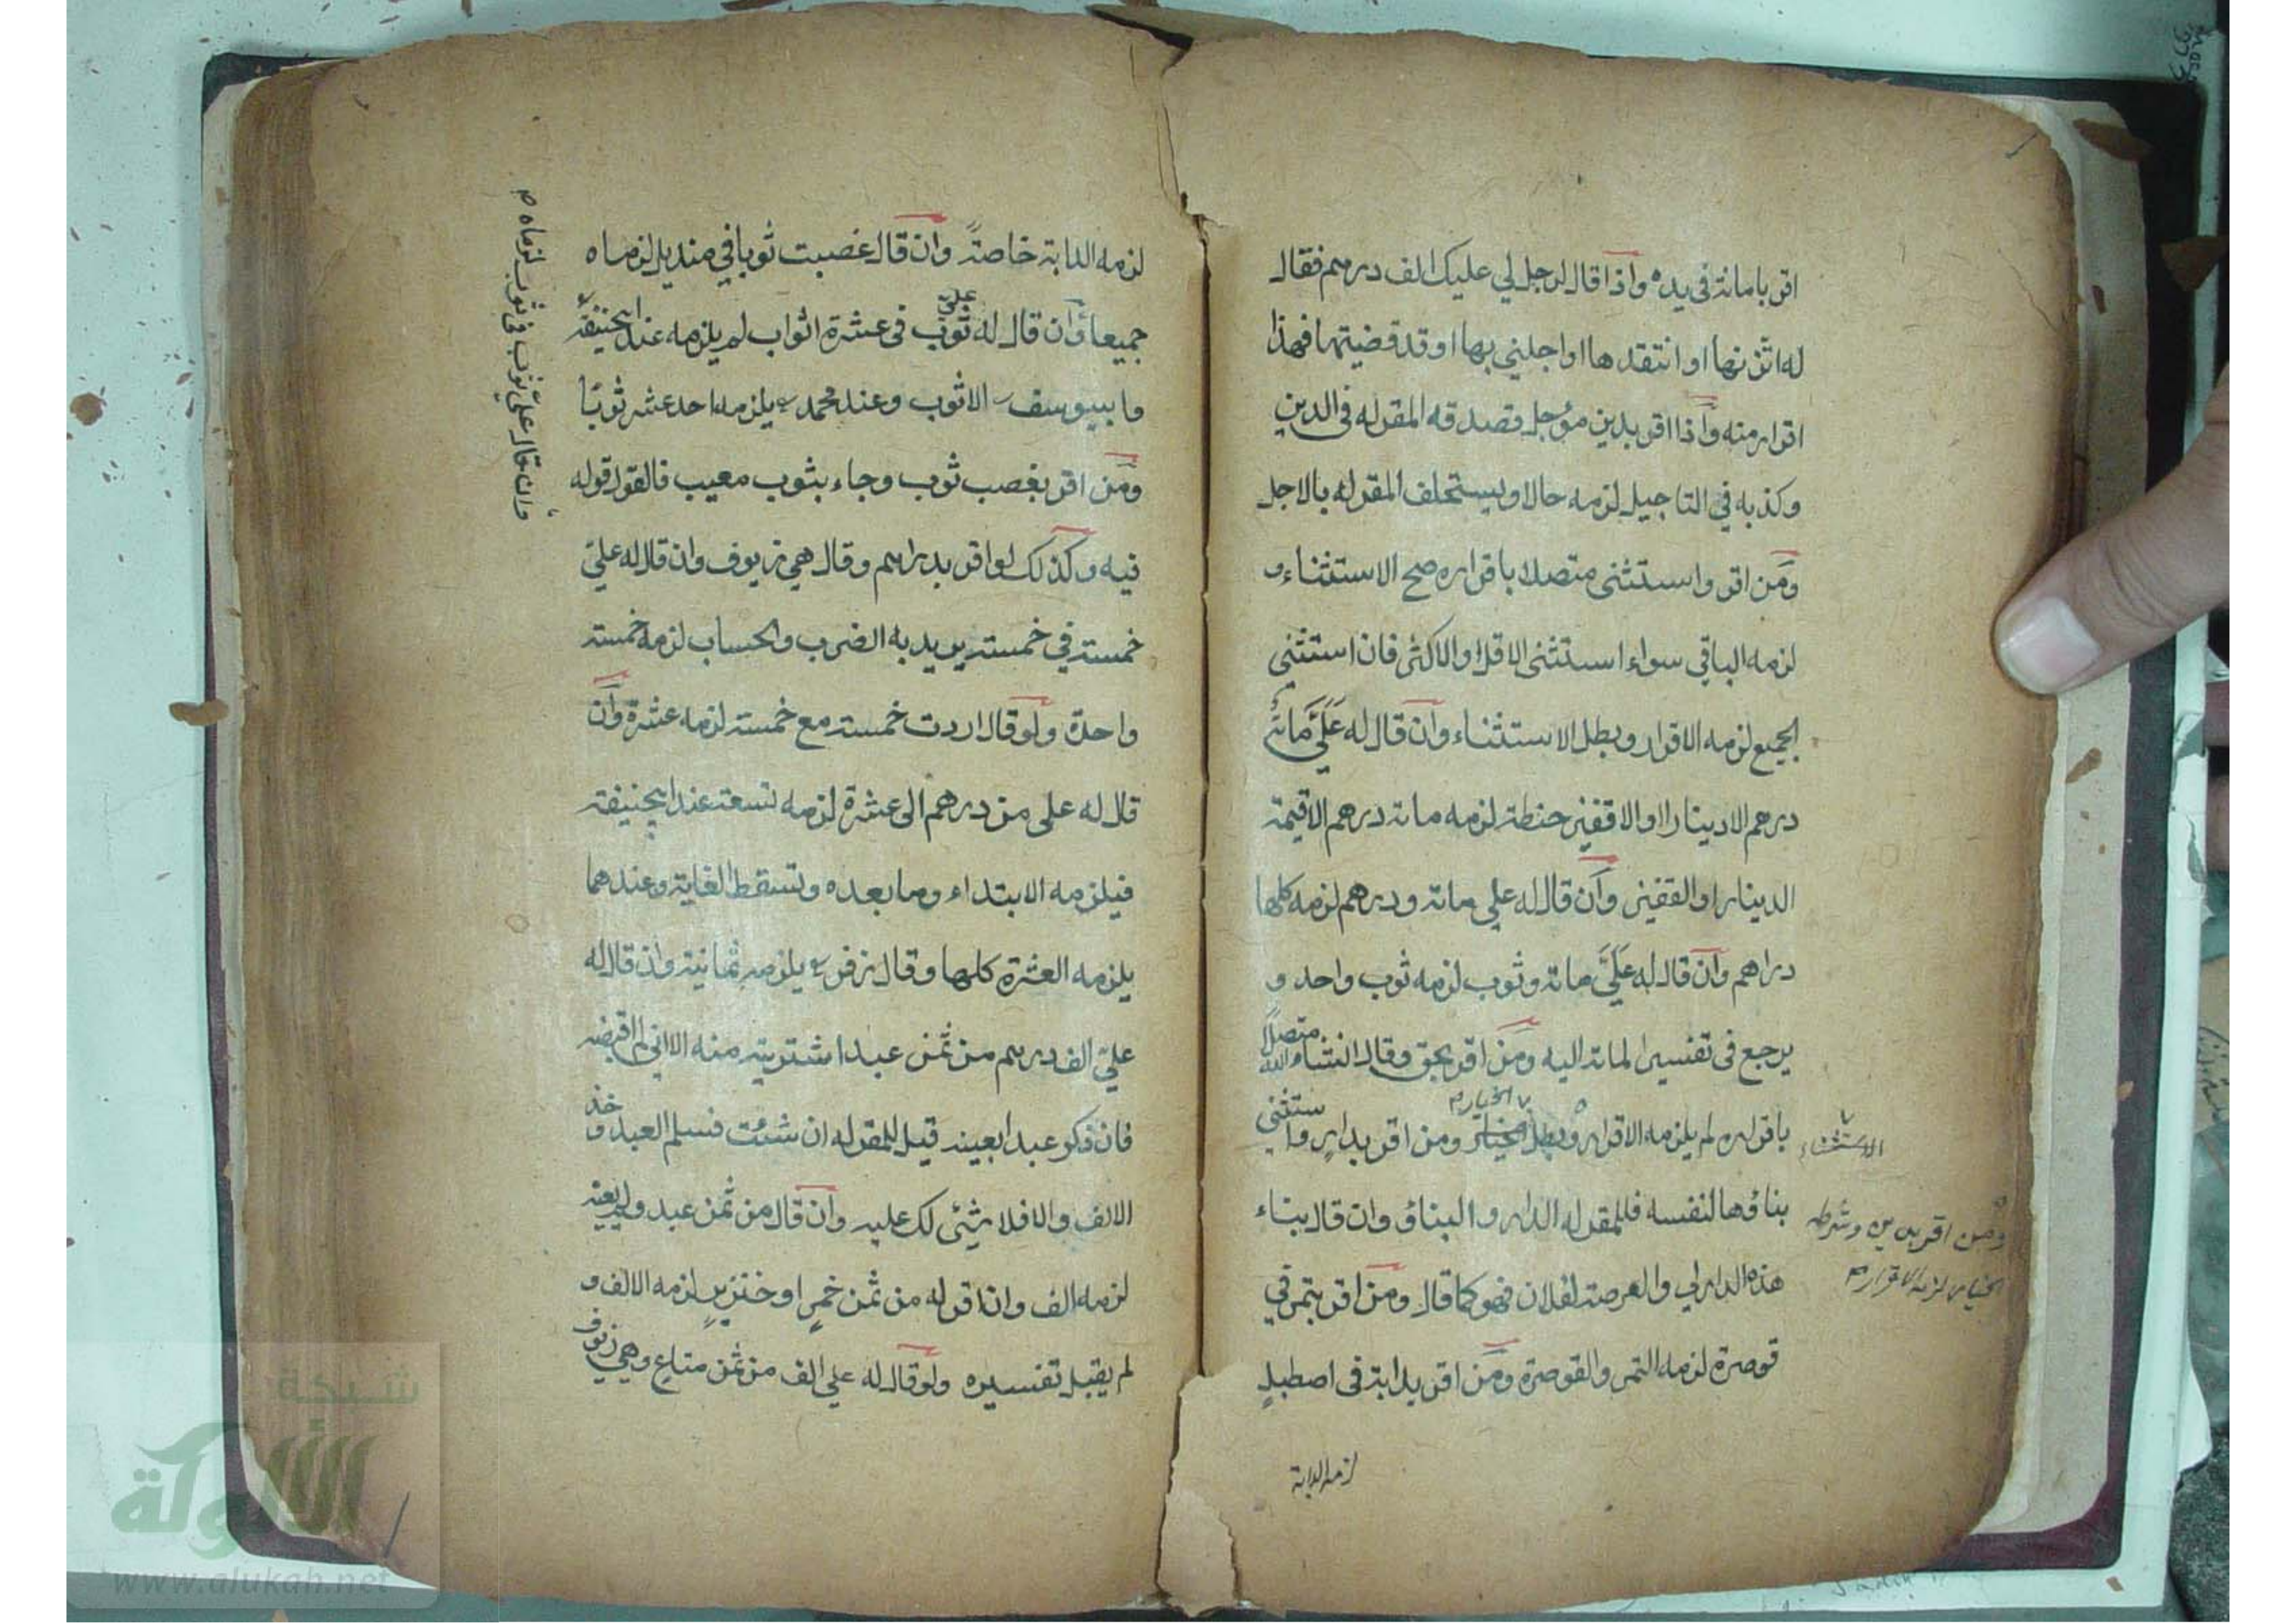 اقر بامانة فى يده واذا قال لرجل لي عليك الف درهم فقال
له اتزنها او انتقدها او اجلني بها او قد قضيتها فهذا
اقرار منه واذا اقر بدين مؤجل فصدقه المقر له فى الدين
وكذبه في التاجيل لزمه حالا ويستحلف المقر له بالاجل
ومن اقر واستثنى متصلا باقراره صح الاستثناء و
لزمه الباقي سواء استثنى الاقل او الاكثر فان استثنى
الجميع لزمه الاقرار وبطل الاستثناء وان قال له عَلَيَّ مائة
درهم الا دينارا او الا قفيز حنطة لزمه مائة درهم الا قيمة
الدينار او القفيز وان قال له علي مائة ودرهم لزمه كلها
دراهم وان قال له عَلَيَّ مائة وثوب لزمه ثوب واحد و
يرجع فى تفسير المائة اليه ومن اقر بحق وقال انشاء الله متصلاً
باقراره لم يلزمه الاقرار وبطل الخيار ومن اقر بدار واستثنى
الاستثناء
بناؤها لنفسه فللمقر له الدار والبناؤ وان قال بناء
ومن اقر بدين وشرط
الخيار لزمه الاقرار م
هذه الدار لي والعرصة لفلان فهو كما قال ومن اقر بتمر في
قوصرة لزمه التمر والقوصرة ومن اقر بدابة فى اصطبل
لزمه الدابة
لزمه الدابة خاصةً وان قال غصبت ثوبا في منديل لزماه
جميعا وان قال له عليّ ثوب فى عشرة اثواب لم يلزمه عند ابيحنيفة
وابييوسف الا ثوب وعند محمد يلزمه احد عشر ثوبًا
ومن اقر بغصب ثوب وجاء بثوب معيب فالقول قوله
فيه وكذلك لو اقر بدراهم وقال هي زيوف وان قال له عليّ
خمسة في خمسة يريد به الضرب والحساب لزمه خمسة
واحدة ولو قال اردت خمسة مع خمسة لزمه عشرة وان
قال له على من درهم الى عشرة لزمه تسعة عند ابيحنيفة
فيلزمه الابتداء وما بعده وتسقط الغاية وعندهما
يلزمه العشرة كلها وقال زفر يلزمه ثمانية وان قال له
عليّ الف درهم من ثمن عبد اشتريته منه الا اني لم اقبضه
فان ذكر عبدا بعينه قيل للمقر له ان شئت فسلم العبد وخذ
الالف والا فلا شئى لك عليه وان قال من ثمن عبد ولم يعينه
لزمه الف وان اقر له من ثمن خمرٍ او خنزيرٍ لزمه الالف و
لم يقبل تفسيره ولو قال له علي الف من ثمن متاع وهي زيوف
وان قال عليّ ثوب فى ثوب لزماه م
شبكة
الألوكة
www.alukah.net